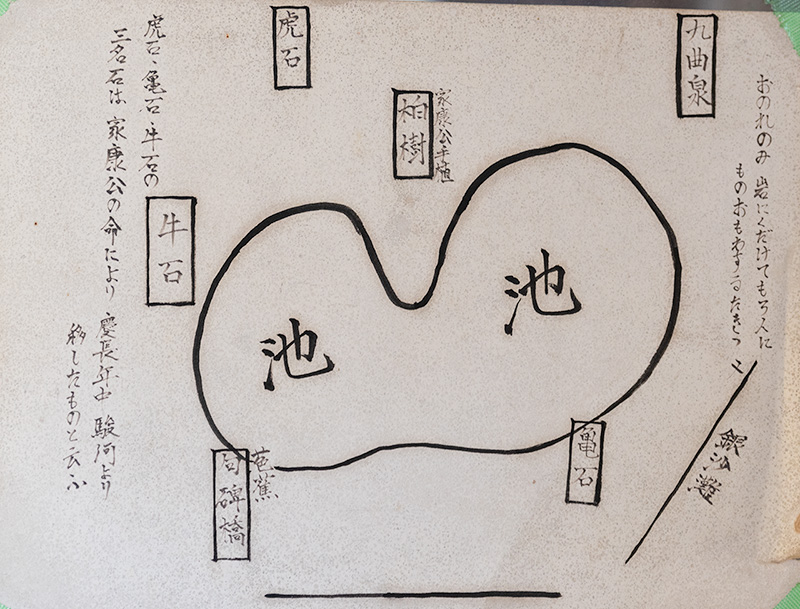 九曲泉
おのれのみ 岩にくだけてもろ人に
ものおもわするたきつ
銀沙灘
家康公手植
柏樹
虎石
池
池
亀石
牛石
芭蕉
句碑橋
虎石、亀石、牛石の
三名石は 家康公の命により 慶長年中 駿河より
移したものと云ふ